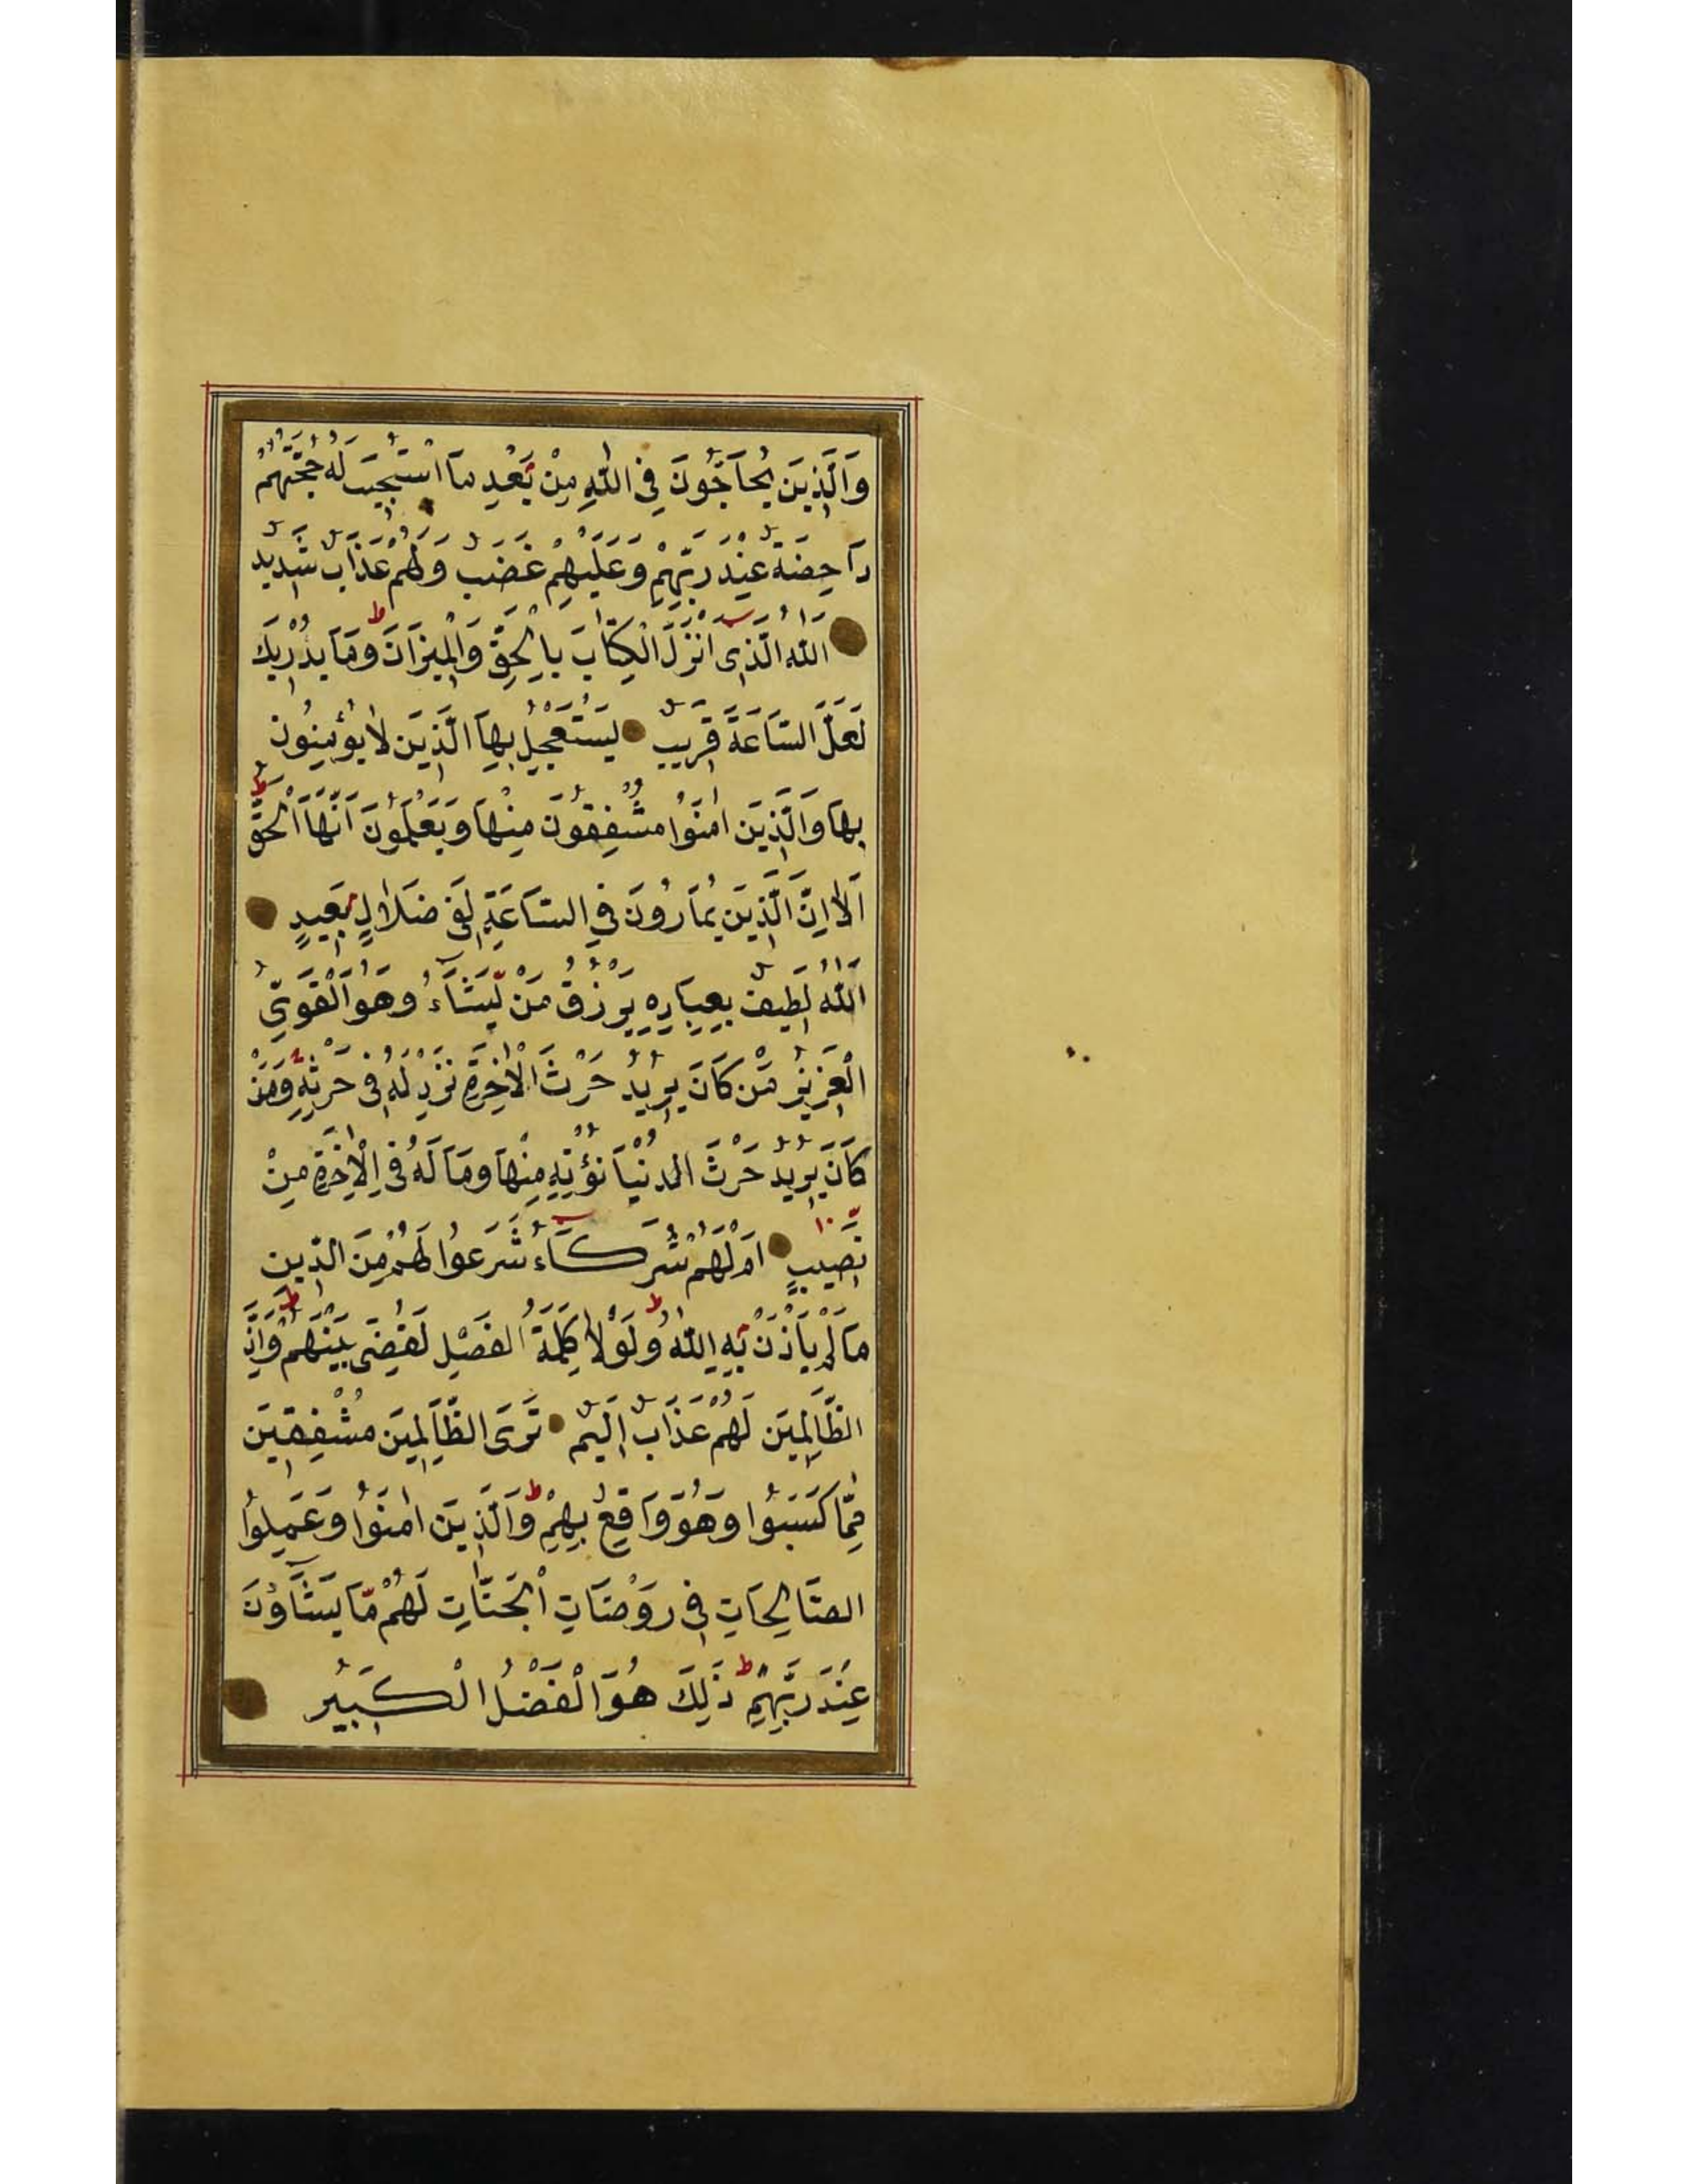 وَالَّذِينَ يُحَاجُّونَ فِي اللّٰهِ مِنْ بَعْدِ مَا اسْتُجِيبَ لَهُ حُجَّتُهُمْ
دَاحِضَةٌ عِنْدَ رَبِّهِمْ وَعَلَيْهِمْ غَضَبٌ وَلَهُمْ عَذَابٌ شَدِيدٌ
اَللّٰهُ الَّذِى اَنْزَلَ الْكِتَابَ بِالْحَقِّ وَالْمِيزَانَ ط وَمَا يُدْرِيكَ
لَعَلَّ السَّاعَةَ قَرِيبٌ يَسْتَعْجِلُ بِهَا الَّذِينَ لَا يُؤْمِنُونَ
بِهَا وَالَّذِينَ اٰمَنُوا مُشْفِقُونَ مِنْهَا وَيَعْلَمُونَ اَنَّهَا الْحَقُّ ط
اَلَا اِنَّ الَّذِينَ يُمَارُونَ فِي السَّاعَةِ لَفِي ضَلَالٍ بَعِيدٍ
اَللّٰهُ لَطِيفٌ بِعِبَادِهِ يَرْزُقُ مَنْ يَّشَآءُ وَهُوَ الْقَوِيُّ
الْعَزِيزُ مَنْ كَانَ يُرِيدُ حَرْثَ الْاٰخِرَةِ نَزِدْ لَهُ فِي حَرْثِهِ وَمَنْ
كَانَ يُرِيدُ حَرْثَ الدُّنْيَا نُؤْتِهِ مِنْهَا وَمَا لَهُ فِي الْاٰخِرَةِ مِنْ
نَّصِيبٍ ١٠ اَمْ لَهُمْ شُرَكَآءُ شَرَعُوا لَهُمْ مِنَ الدِّينِ
مَا لَمْ يَأْذَنْ بِهِ اللّٰهُ ط وَلَوْلَا كَلِمَةُ الْفَصْلِ لَقُضِيَ بَيْنَهُمْ ط وَاِنَّ
الظَّالِمِينَ لَهُمْ عَذَابٌ اَلِيمٌ تَرَى الظَّالِمِينَ مُشْفِقِينَ
مِمَّا كَسَبُوا وَهُوَ وَاقِعٌ بِهِمْ ط وَالَّذِينَ اٰمَنُوا وَعَمِلُوا
الصَّالِحَاتِ فِي رَوْضَاتِ الْجَنَّاتِ لَهُمْ مَّا يَشَآؤُنَ
عِنْدَ رَبِّهِمْ ط ذٰلِكَ هُوَ الْفَضْلُ الْكَبِيرُ